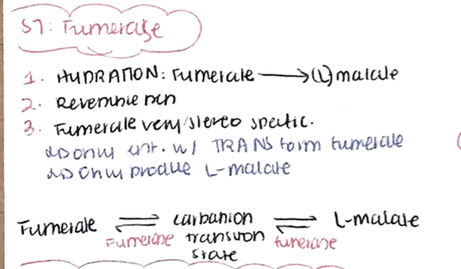 S7: Fumerase
1. HYDRATION: Fumerate → (L) malate
2. Reversible rxn
3. Fumerase very stereo specific.
↳ only int. w/ TRANS form fumerate
↳ Only produce L-malate
Fumerate ⇌ carbanion ⇌ L-malate
Fumerase transition fumerase
state